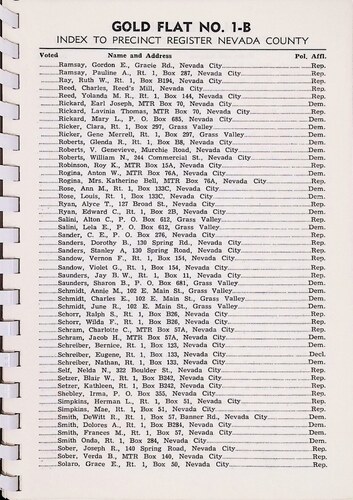 GOLD FLAT NO. 1-B
INDEX TO PRECINCT REGISTER NEVADA COUNTY
Voted Name and Address Pol. Affl.
Ramsay, Gordon E., Gracie Rd., Nevada City Rep.
Ramsay, Pauline A., Rt. 1, Box 287, Nevada City Rep.
Ray, Ruth W., Rt. 1, Box B194, Nevada City Rep.
Reed, Charles, Reed's Mill, Nevada City Rep.
Reed, Yolanda M. R., Rt. 1, Box 144, Nevada City Rep.
Rickard, Earl Joseph, MTR Box 70, Nevada City Dem.
Rickard, Lavinia Thomas, MTR Box 70, Nevada City Rep.
Rickard, Mary L., P. O. Box 685, Nevada City Dem.
Ricker, Clara, Rt. 1, Box 297, Grass Valley Dem.
Ricker, Gene Merrell, Rt. 1, Box 297, Grass Valley Dem.
Roberts, Glenda R., Rt. 1, Box B8, Nevada City Dem.
Roberts, V. Genevieve, Murchie Road, Nevada City Dem.
Roberts, William N., 244 Commercial St., Nevada City Dem.
Robinson, Roy K., MTR Box 15A, Nevada City Rep.
Rogina, Anton W., MTR Box 76A, Nevada City Rep.
Rogina, Mrs. Katherine Bell, MTR Box 76A, Nevada City Rep.
Rose, Ann M., Rt. 1, Box 133C, Nevada City Rep.
Rose, Louis, Rt. 1, Box 133C, Nevada City Dem.
Ryan, Alyce T., 127 Broad St., Nevada City Rep.
Ryan, Edward C., Rt. 1, Box 2B, Nevada City Dem.
Salini, Alton C., P. O. Box 612, Grass Valley Dem.
Salini, Lela E., P. O. Box 612, Grass Valley Dem.
Sander, C. E., P. O. Box 276, Nevada City Rep.
Sanders, Dorothy B., 130 Spring Rd., Nevada City Rep.
Sanders, Stanley A, 130 Spring Road, Nevada City Rep.
Sandow, Vernon F., Rt. 1, Box 154, Nevada City Rep.
Sandow, Violet G., Rt. 1, Box 154, Nevada City Rep.
Saunders, Jay B. W., Rt. 1, Box 11, Nevada City Rep.
Saunders, Sharon B., P. O. Box 681, Grass Valley Dem.
Schmidt, Annie M., 102 E. Main St., Grass Valley Dem.
Schmidt, Charles E., 102 E. Main St., Grass Valley Dem.
Schmidt, June R., 102 E. Main St., Grass Valley Dem.
Schorr, Ralph S., Rt. 1, Box B26, Nevada City Rep.
Schorr, Wilda F., Rt. 1, Box B26, Nevada City Rep.
Schram, Charlotte C., MTR Box 57A, Nevada City Rep.
Schram, Jacob H., MTR Box 57A, Nevada City Dem.
Schreiber, Bernice, Rt. 1, Box 133, Nevada City Dem.
Schreiber, Eugene, Rt. 1, Box 133, Nevada City Decl.
Schreiber, Nathan, Rt. 1, Box 133, Nevada City Dem.
Self, Nelda N., 322 Boulder St., Nevada City Rep.
Setzer, Blair W., Rt. 1, Box B242, Nevada City Rep.
Setzer, Kathleen, Rt. 1, Box B242, Nevada City Rep.
Shebley, Irma, P. O. Box 355, Nevada City Rep.
Simpkins, Herman L., Rt. 1, Box 51, Nevada City Rep.
Simpkins, Mae, Rt. 1, Box 51, Nevada City Rep.
Smith, DeWitt R., Rt. 1, Box 57, Banner Rd., Nevada City Dem.
Smith, Dolores A., Rt. 1, Box B284, Nevada City Dem.
Smith, Frances M., Rt. 1, Box 57, Nevada City Dem.
Smith Ondo, Rt. 1, Box 284, Nevada City Dem.
Sober, Joseph R., 140 Spring Road, Nevada City Rep.
Sober, Verda B., MTR Box 140, Nevada City Rep.
Solaro, Grace E., Rt. 1, Box 50, Nevada City Rep.